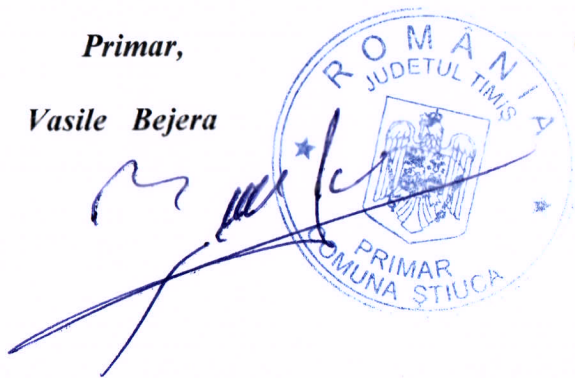 Primar,
Vasile Bejera
ROMÂNIA
JUDETUL TIMIŞ
PRIMAR
COMUNA ŞTIUCA